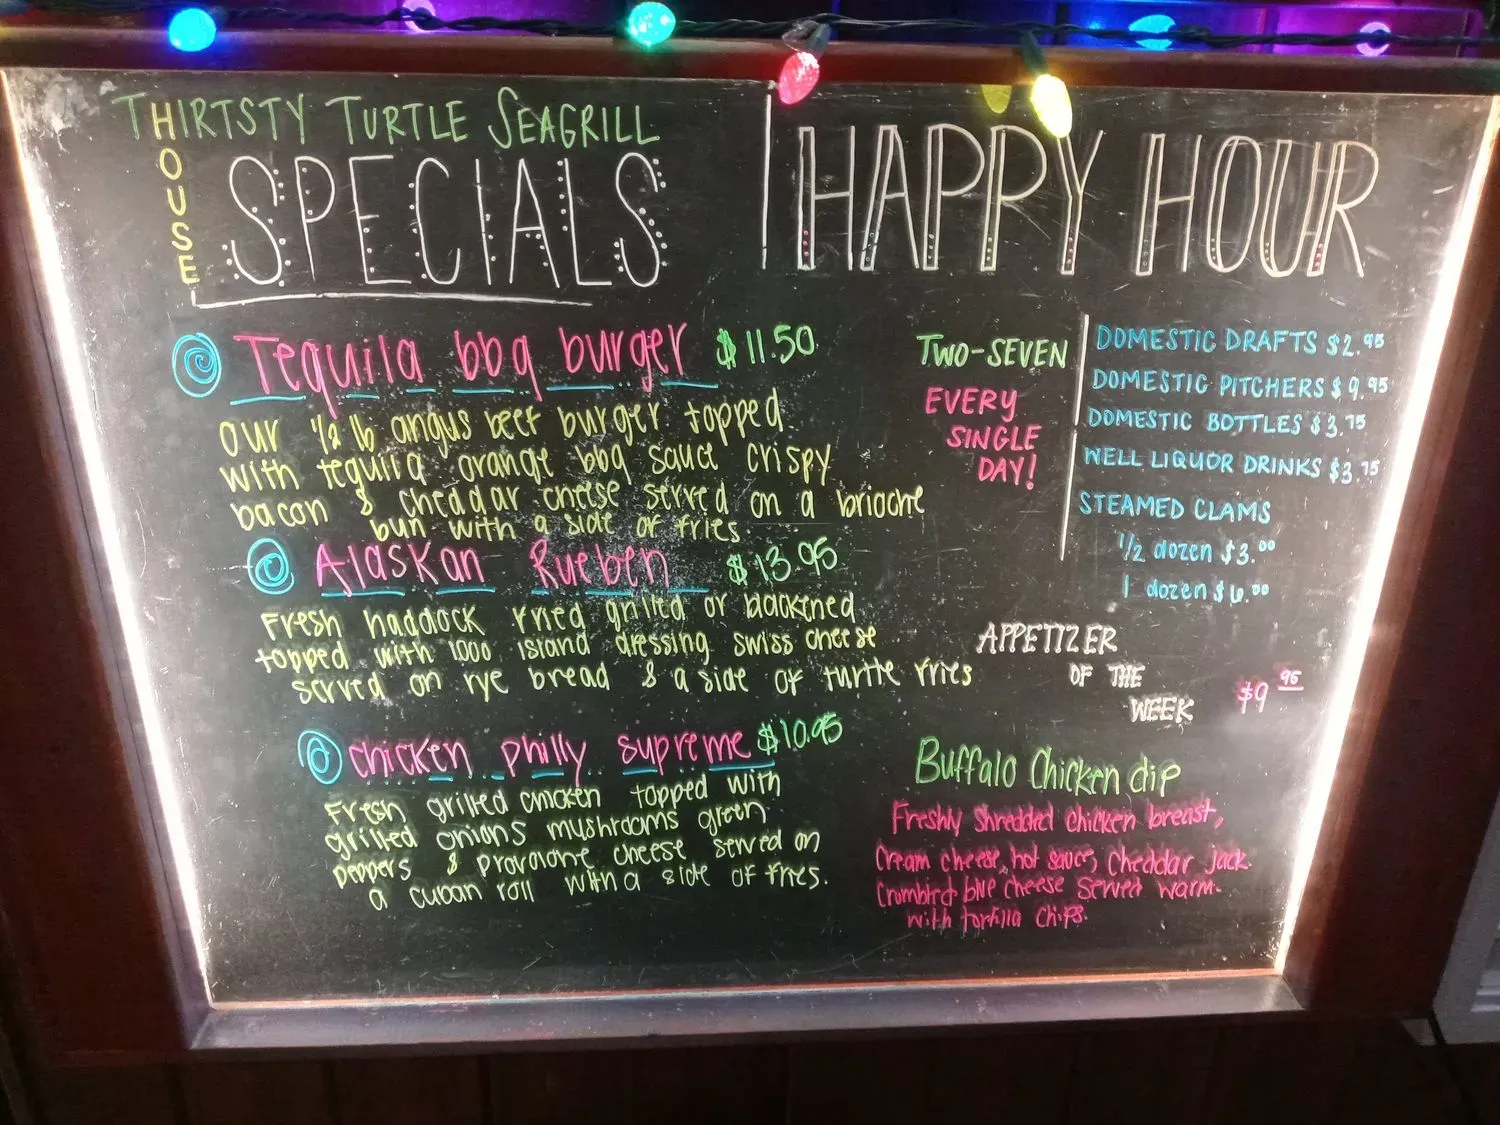 THIRTSTY TURTLE SEAGRILL
HOUSE
SPECIALS
Tequila bbq burger $11.50
Our 1/2 lb angus beef burger topped
with tequila orange bbq sauce crispy
bacon & cheddar cheese served on a brioche
bun with a side of fries
Alaskan Rueben $13.95
Fresh haddock fried grilled or blackened
topped with 1000 island dressing swiss cheese
served on rye bread & a side of turtle fries
Chicken philly supreme $10.95
Fresh grilled chicken topped with
grilled onions mushrooms green
peppers & provolone cheese served on
a cuban roll with a side of fries.
HAPPY HOUR
TWO-SEVEN
EVERY
SINGLE
DAY!
DOMESTIC DRAFTS $2.95
DOMESTIC PITCHERS $9.95
DOMESTIC BOTTLES $3.75
WELL LIQUOR DRINKS $3.75
STEAMED CLAMS
1/2 dozen $3.00
1 dozen $6.00
APPETIZER
OF THE
WEEK $9.95
Buffalo Chicken dip
Freshly Shredded chicken breast,
Cream cheese, hot sauce, cheddar jack
Crumbled blue cheese served warm.
with tortilla chips.